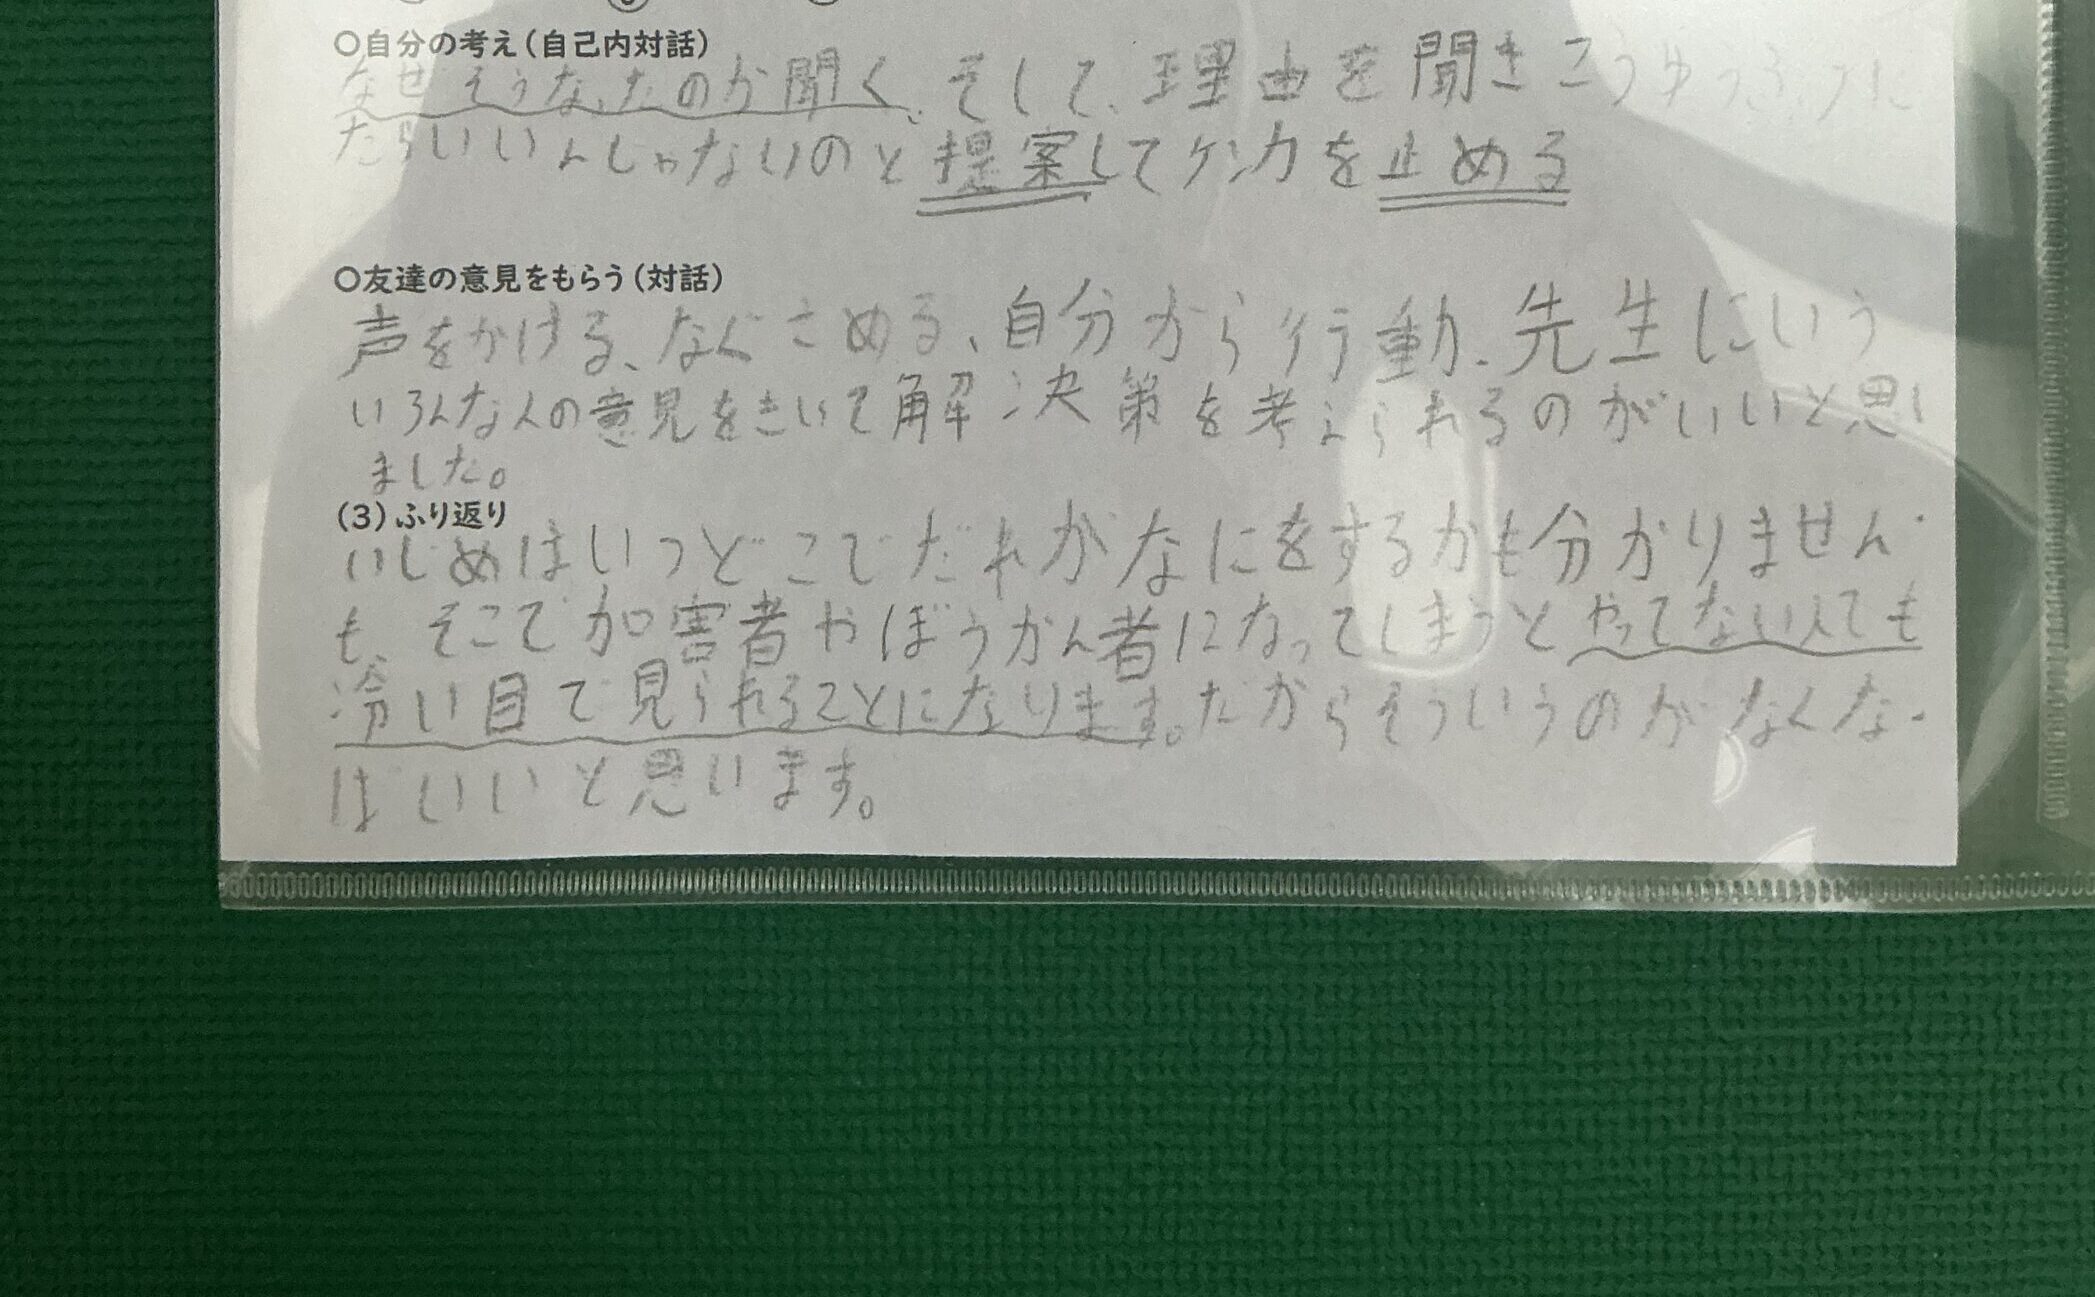 ○自分の考え(自己内対話)
なぜそうなったのか聞く、そして、理由を聞きこうゆうふうに
たらいいんじゃないのと提案してケンカを止める
○友達の意見をもらう(対話)
声をかける、なぐさめる、自分から行動、先生にいう
いろんな人の意見をきいて解決策を考えられるのがいいと思い
ました。
(3)ふり返り
いじめはいつどこでだれがなにをするかも分かりません
も、そこで加害者やぼうかん者になってしまうとやってない人でも
冷い目で見られることになります。だからそういうのがなくな
ばいいと思います。